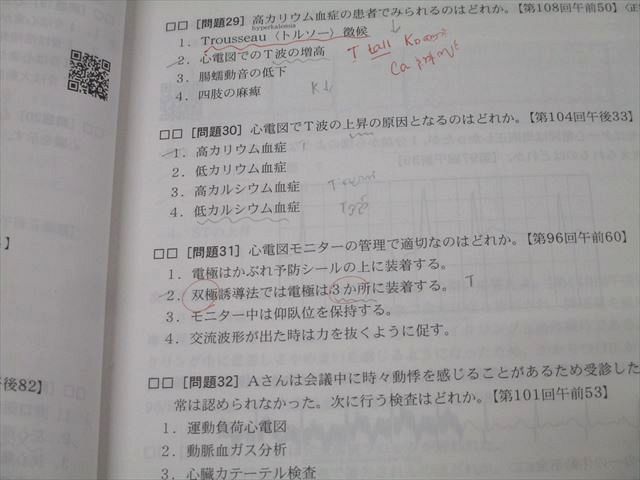 □□ [問題29] 高カリウム血症の患者でみられるのはどれか。【第108回午前50】
hyperkalemia
1. Trousseau〈トルソー〉徴候
2. 心電図でのT波の増高
T tall
Ca
3. 腸蠕動音の低下
4. 四肢の麻痺
K↓
□□ [問題30] 心電図でT波の上昇の原因となるのはどれか。【第104回午後33】
1. 高カリウム血症
2. 低カリウム血症
3. 高カルシウム血症
4. 低カルシウム血症
□□ [問題31] 心電図モニターの管理で適切なのはどれか。【第96回午前60】
1. 電極はかぶれ予防シールの上に装着する。
2. 双極誘導法では電極は3か所に装着する。
3. モニター中は仰臥位を保持する。
4. 交流波形が出た時は力を抜くように促す。
午後82】
□□ [問題32] Aさんは会議中に時々動悸を感じることがあるため受診した
常は認められなかった。次に行う検査はどれか。【第101回午前53】
1. 運動負荷心電図
2. 動脈血ガス分析
3. 心臓カテーテル検査